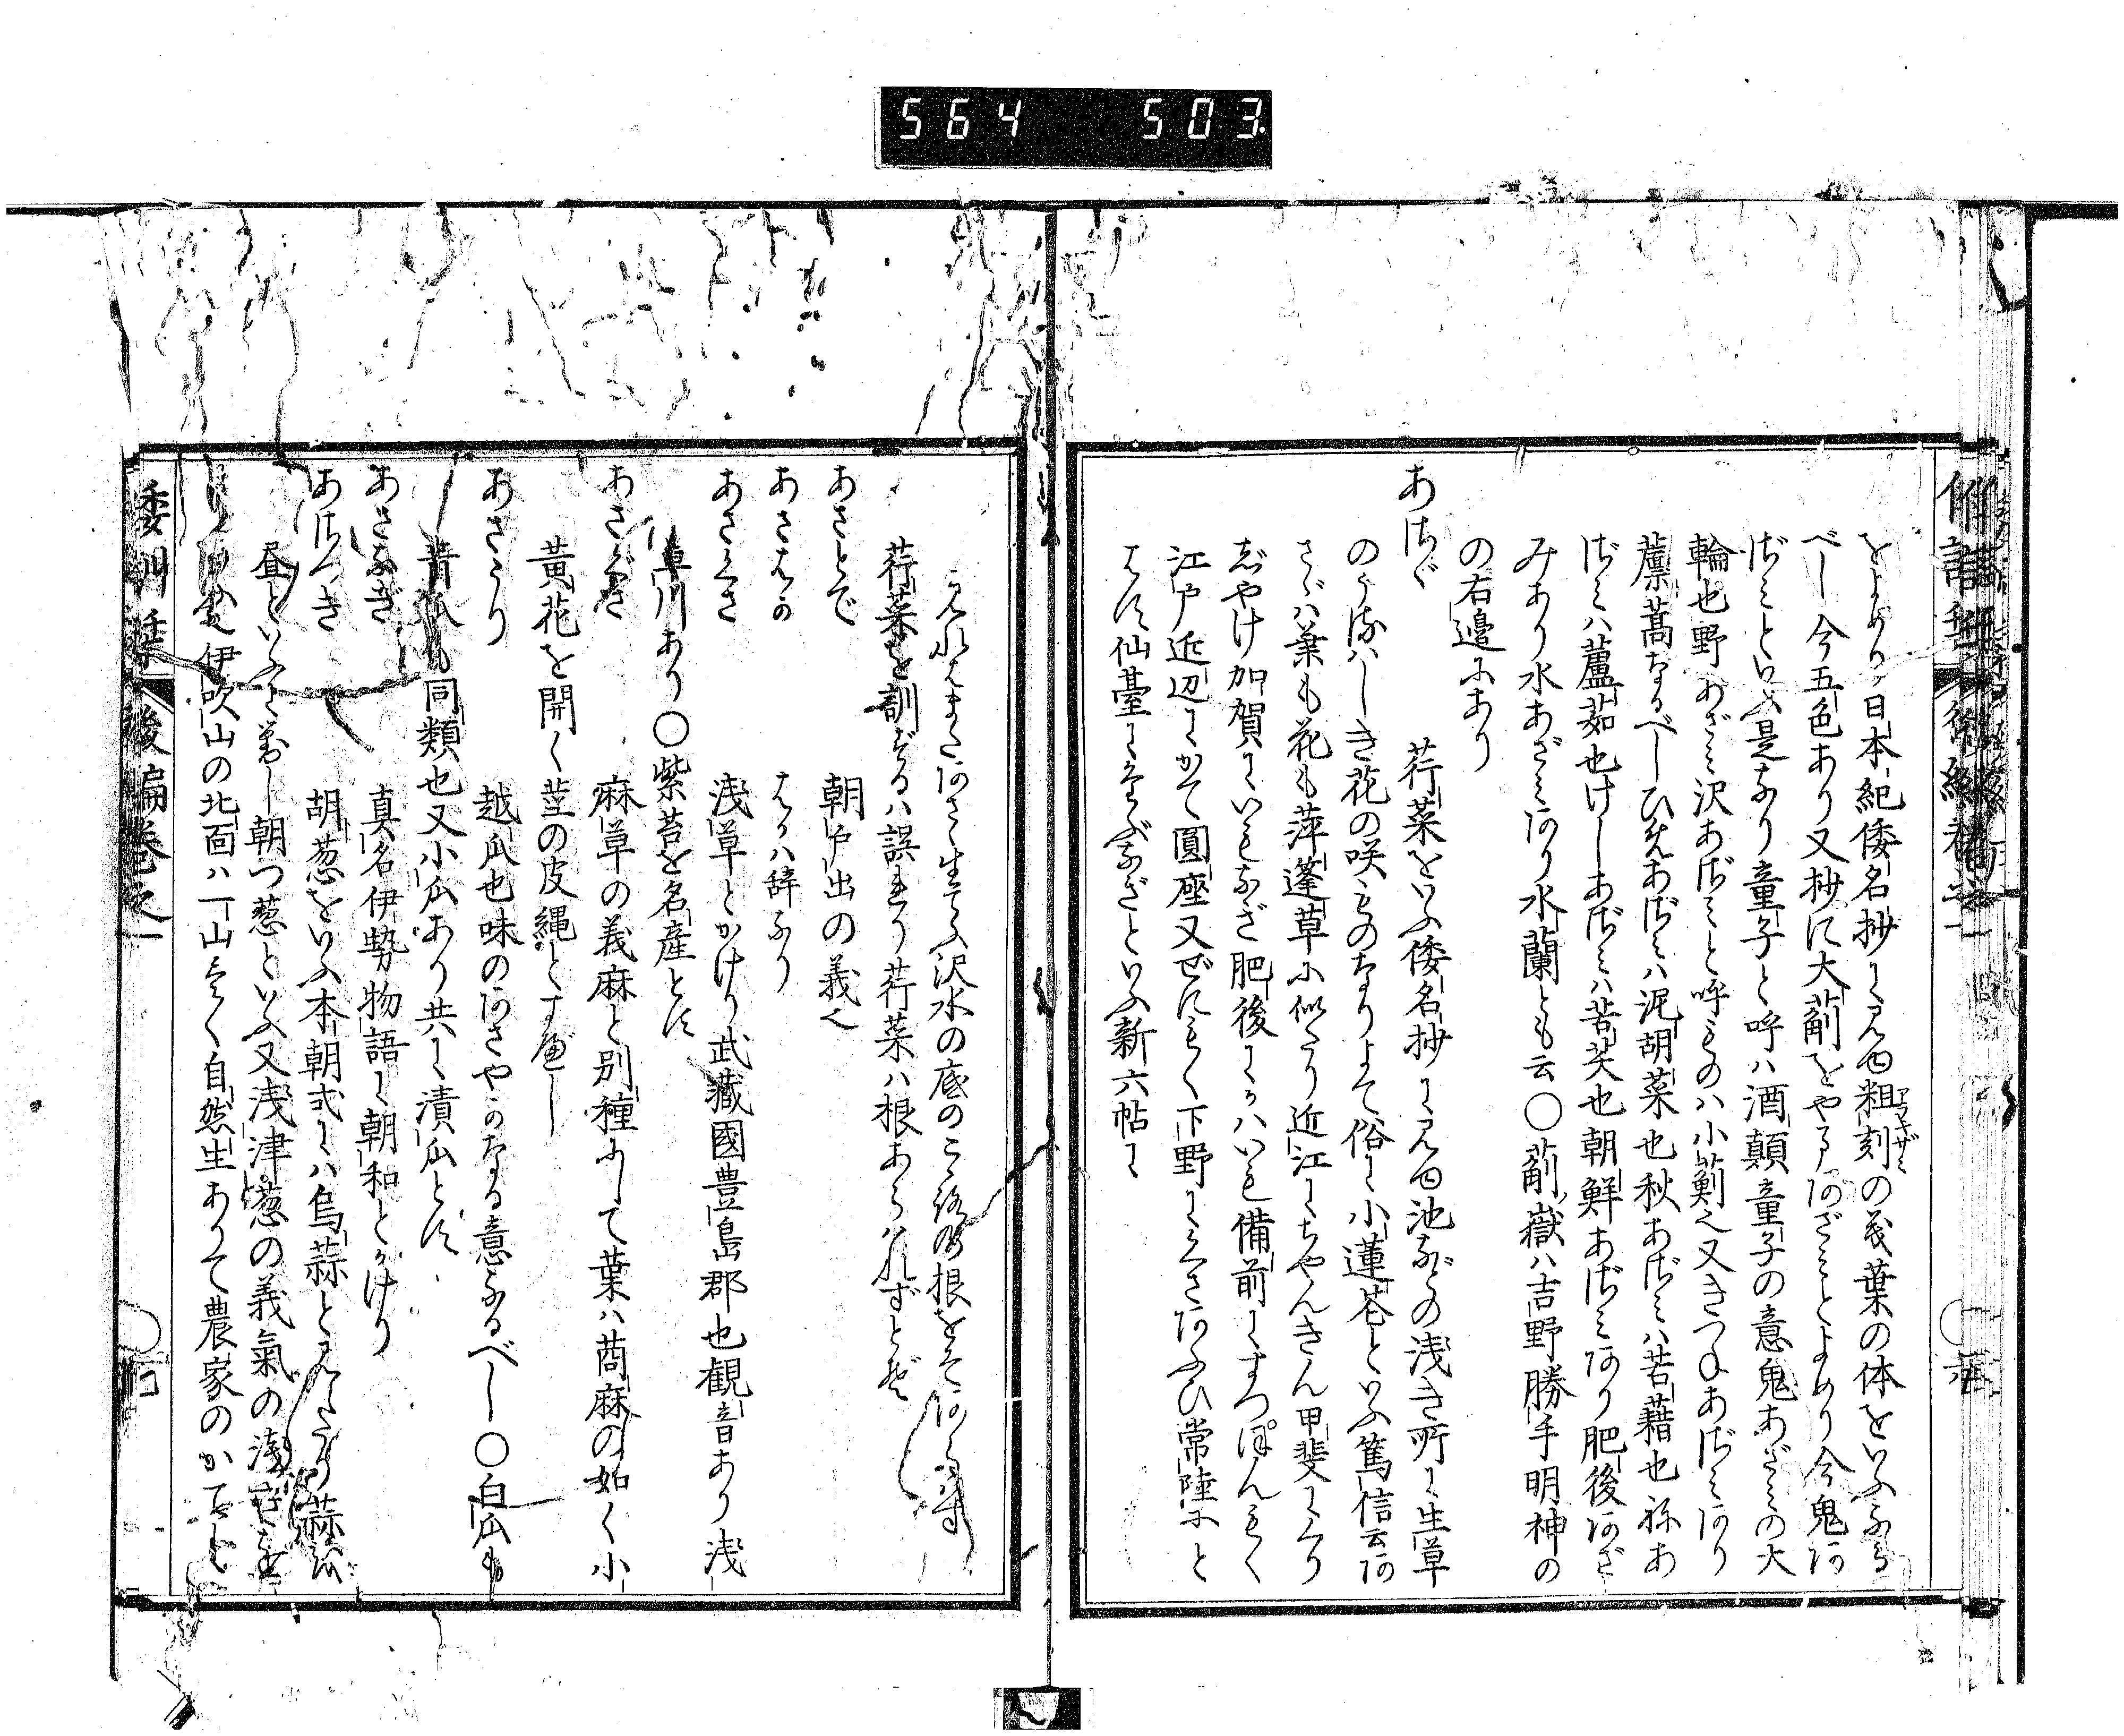 564 503
をよめり日本紀倭名抄にみゆ粗刻の義葉の体をいふなる
アラキザミ
べし今五色あり又抄に大薊をやまあざみとよめり今鬼あ
ざみといふ是なり童子と呼ハ酒顛童子の意鬼あざみの大
輪也野あざみ沢あざみと呼ものハ小薊也又きつねあざみあり
藨蒿なるべしひめあざみハ泥胡菜也秋あざみハ苦藉也ねあ
ざみハ藘茹也けしあざみハ苦芺也朝鮮あざみあり肥後あざ
みあり水あざみあり水蘭とも云〇薊嶽ハ吉野勝手明神の
の右邉にあり
あさゞ 荇菜をいふ倭名抄にみゆ池などの浅き所に生草
のうるハしき花の咲ものなりよて俗に小蓮花といふ篤信云あ
さゞハ葉も花も萍蓬草に似たり近江にちやんきん甲斐にくり
じやけ加賀にいもなぎ肥後にかハいも備前にすつぽんもく
江戸近辺にかて圓座又ぜにもく下野にくさあふひ常陸にと
ちも仙臺にとんぶなぎといふ新六帖に
みれはまたあさゝ生てふ沢水の底のこゝろの根をそあらそ
荇菜を訓ずるハ誤れり荇菜ハ根あらハれずとぞ
あさとで 朝戸出の義也
あさはか はかハ辞なり
あさくさ 浅草とかけり武藏國豊島郡也観音あり浅
草川あり〇紫苔を名産とす
あさぐさ 麻草の義麻と別種にして葉ハ蔄麻の如く小
黄花を開く茎の皮縄とすべし
あさうり 越瓜也味のあさやかなる意なるべし〇白瓜も
青瓜も同類也又小瓜あり共に漬瓜とす
あさなぎ 真名伊勢物語に朝和とかけり
あさつき 胡葱をいふ本朝式にハ烏蒜とみえたり蒜を
昼といふに對し朝つ葱といふ又浅津葱の義氣の浅きを
いふ也伊吹山の北面ハ一山ミな自然生ありて農家のかてとし
倭訓栞 後編巻之一